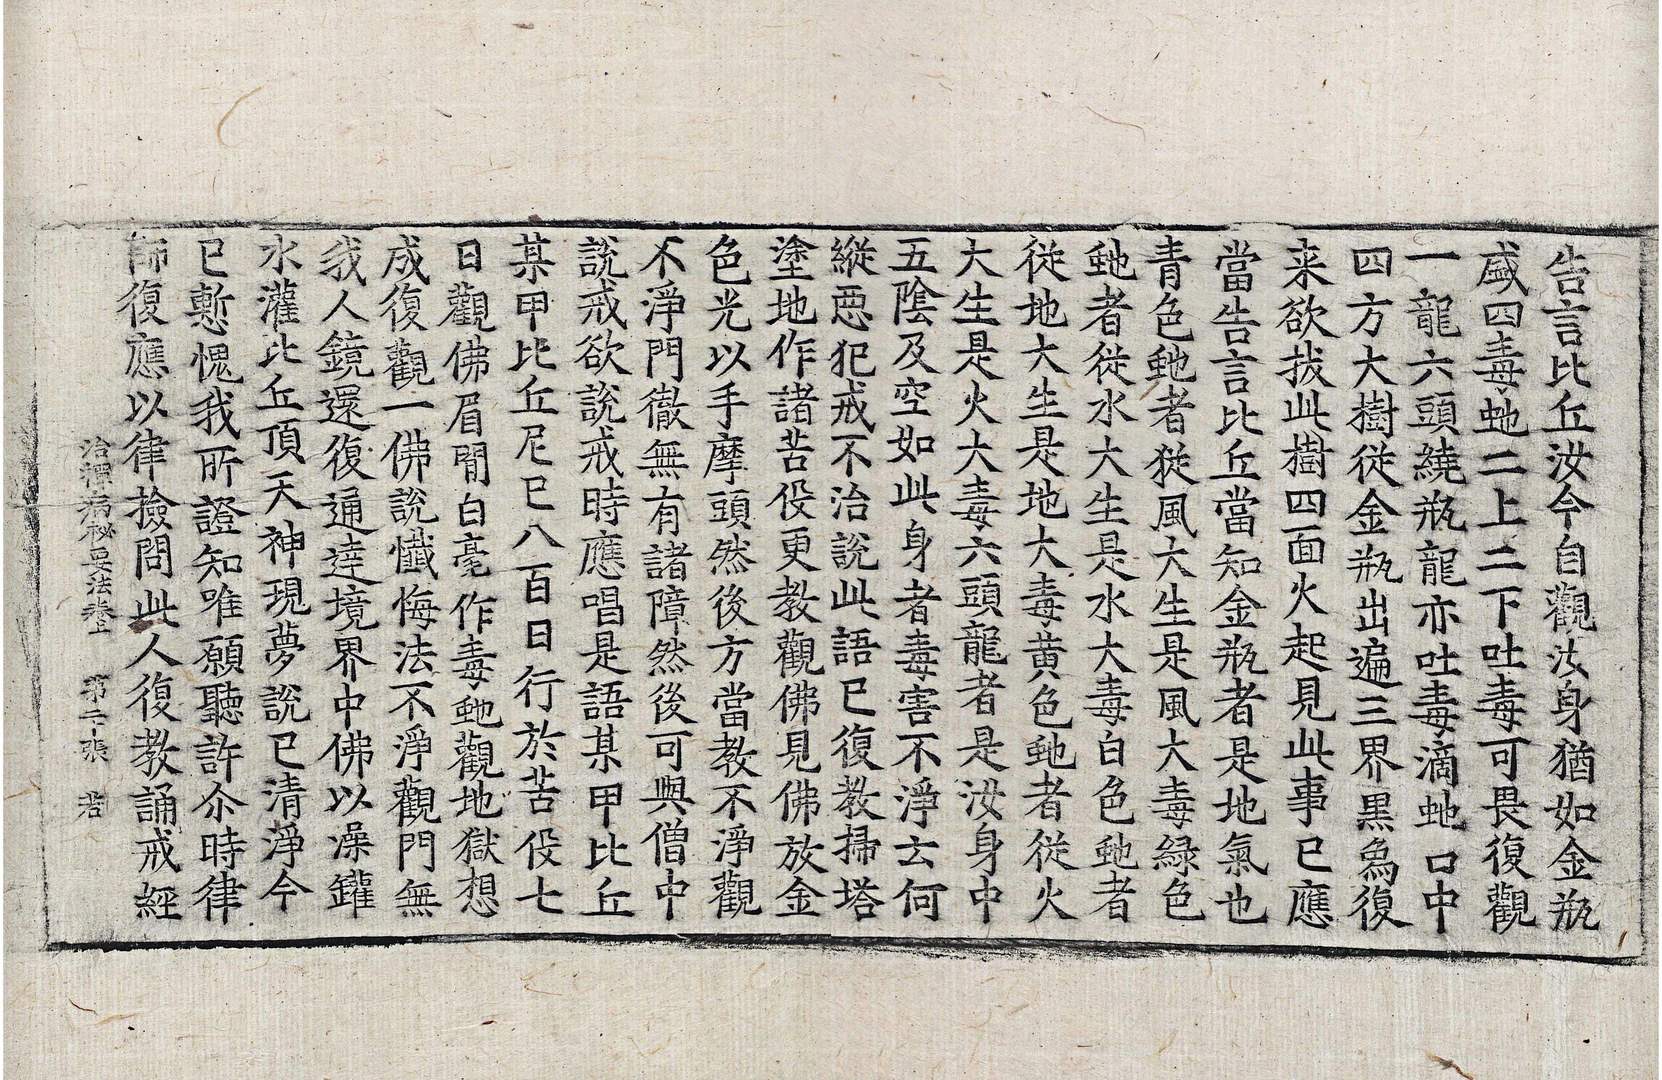 告言比丘汝今自觀汝身猶如金瓶
盛四毒虵二上二下吐毒可畏復觀
一龍六頭繞瓶龍亦吐毒滴虵口中
四方大樹從金瓶出遍三界黑烏復
来欲拔此樹四面火起見此事已應
當告言比丘當知金瓶者是地氣也
青色虵者從風大生是風大毒綠色
虵者從水大生是水大毒白色虵者
從地大生是地大毒黃色虵者從火
大生是火大毒六頭龍者是汝身中
五陰及空如此身者毒害不淨云何
縱惡犯戒不治說此語已復教掃塔
塗地作諸苦役更教觀佛見佛放金
色光以手摩頭然後方當教不淨觀
不淨門徹無有諸障然後可與僧中
說戒欲說戒時應唱是語某甲比丘
某甲比丘尼已八百日行於苦役七
日觀佛眉間白毫作毒虵觀地獄想
成復觀一佛說懺悔法不淨觀門無
我人鏡還復通達境界中佛以澡鑵
水灌比丘頂天神現夢說已清淨今
已慙愧我所證知唯願聽許尒時律
師復應以律撿問此人復教誦戒經
治禪病秘要法卷上　第二十張　若